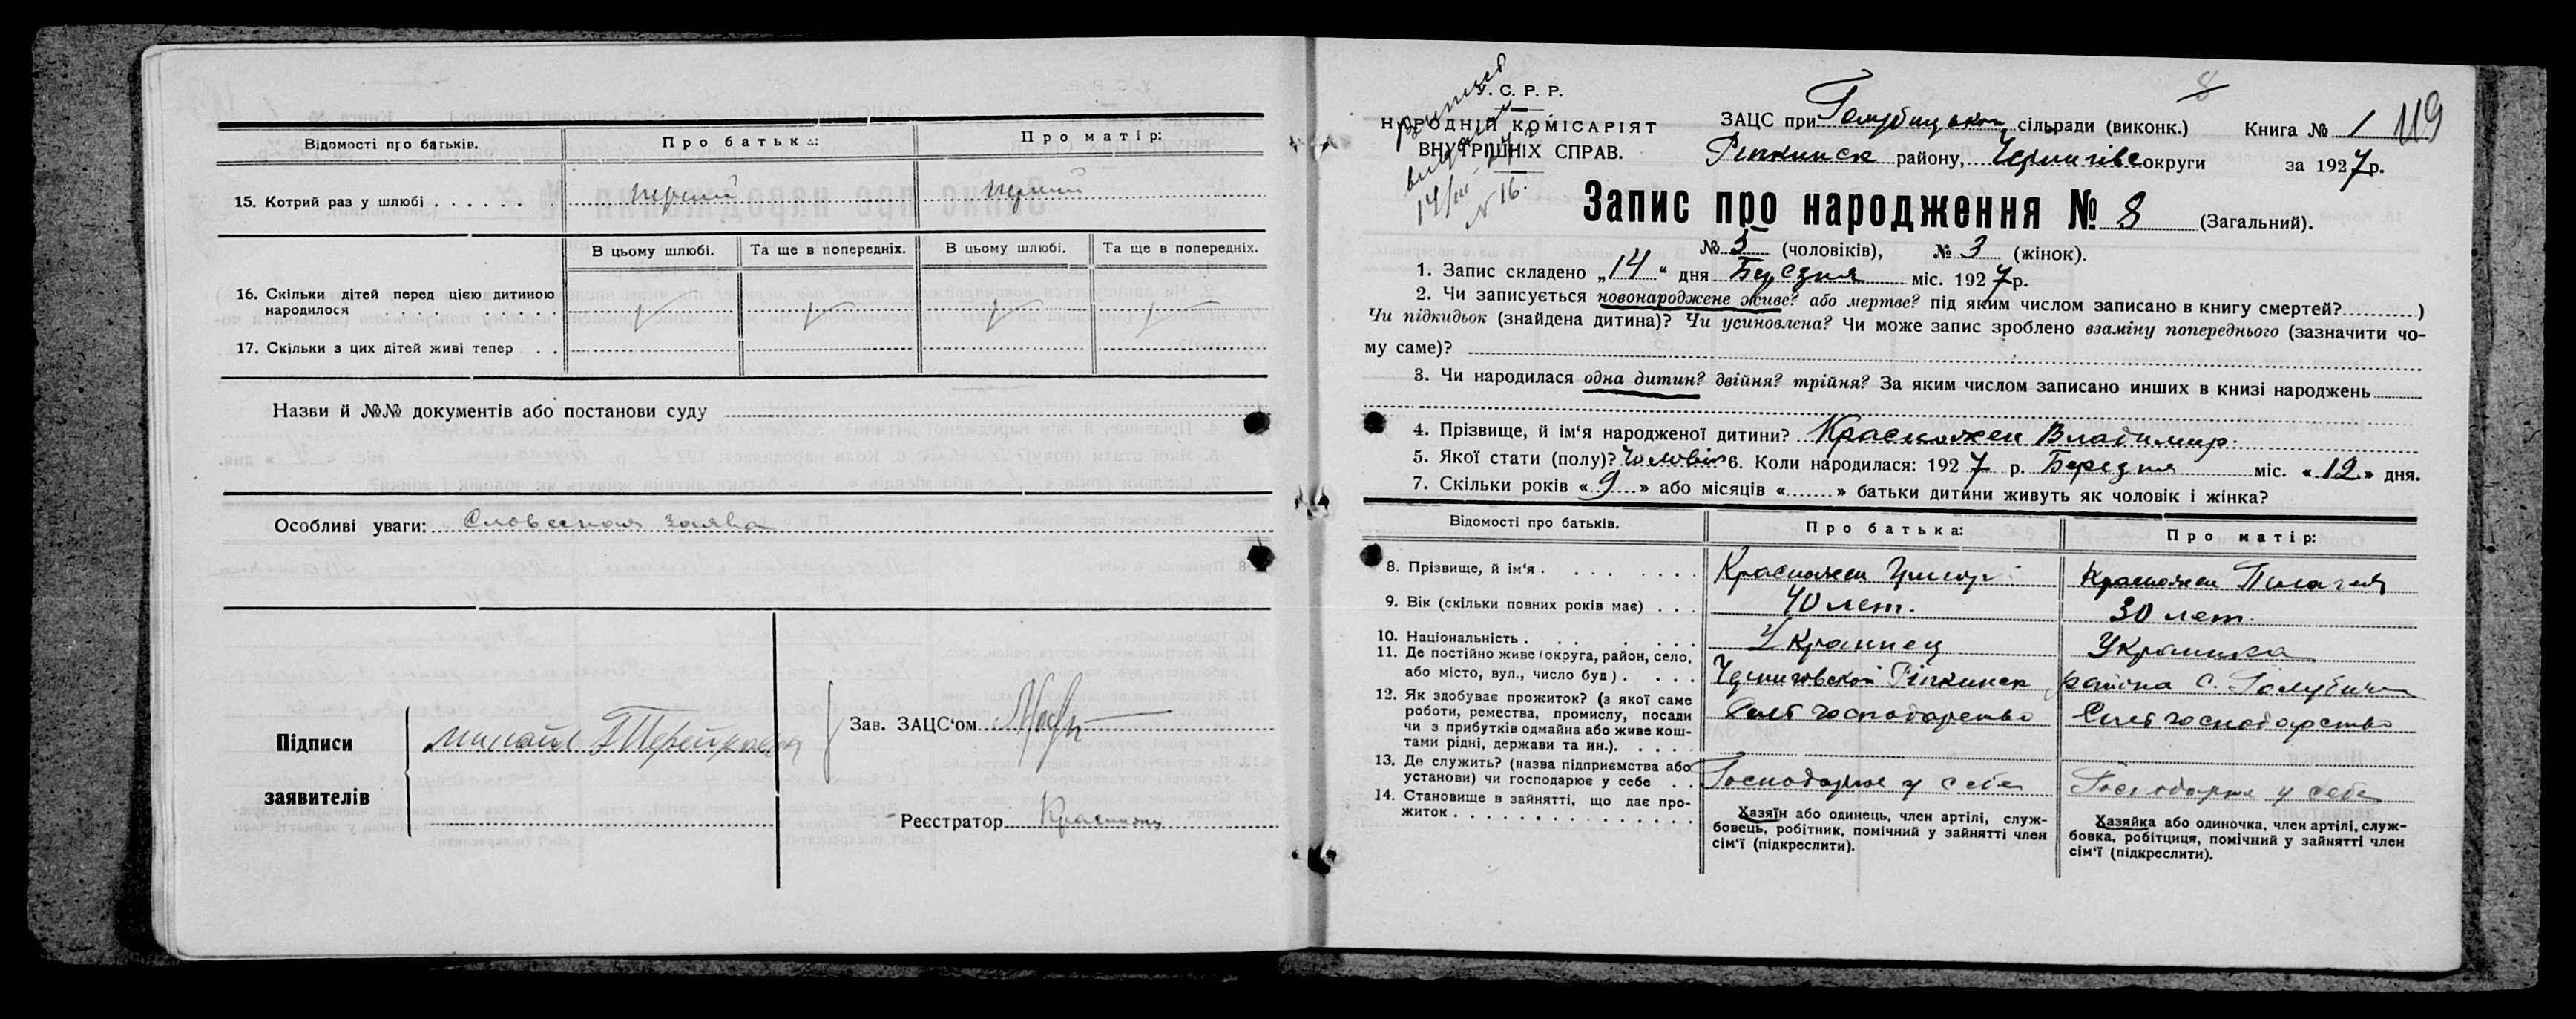 Відомості про батьків.
Про батька:
Про матір:
15. Котрий раз у шлюбі . . . . . .
перший
перший
В цьому шлюбі.
Та ще в попередніх.
В цьому шлюбі.
Та ще в попередніх.
16. Скільки дітей перед цією дитиною
народилося
17. Скільки з цих дітей живі тепер . .
Назви й №№ документів або постанови суду
Особливі уваги: Словесная заява
Підписи
заявителів
Зав. ЗАЦС'ом
Реєстратор
У. С. Р. Р.
НАРОДНІЙ КОМІСАРІЯТ
ВНУТРІШНІХ СПРАВ.
14/III
№ 16.
8
ЗАЦС при сільради (виконк.)
Ріпкинск району, Чернигівс округи
Книга № 1
119
за 1927 р.
Запис про народження № 8 (Загальний).
№ 5 (чоловіків), № 3 (жінок).
1. Запис складено „14“ дня Березня міс. 1927 р.
2. Чи записується новонароджене живе? або мертве? під яким числом записано в книгу смертей?..........)
Чи підкидьок (знайдена дитина)? Чи усиновлена? Чи може запис зроблено взаміну попереднього (зазначити чо-
му саме)?
3. Чи народилася одна дитин? двійня? трійня? За яким числом записано инших в книзі народжень
4. Прізвище, й ім'я народженої дитини? Красножен Владимир.
5. Якої стати (полу)? Чоловік 6. Коли народилася: 1927 р. Березня міс. «12» дня.
7. Скільки років «9» або місяців «.......» батьки дитини живуть як чоловік і жінка?
Відомості про батьків.
Про батька:
Про матір:
8. Прізвище, й ім'я . . . . . . .
Красножен Григор
Красножен Пилагея
9. Вік (скільки повних років має) . . .
40 лет.
30 лет.
10. Національність . . . . . .
Украинец
Украинка
11. Де постійно живе (округа, район, село,
або місто, вул., число буд) . . . .
Черниговской Ріпкинск района с. Голубичи
12. Як здобуває прожиток? (з якої саме
роботи, ремества, промислу, посади
чи з прибутків одмайна або живе кош-
тами рідні, держави та ин.). . . . .
Сільгосподарство
Сільгосподарство
13. Де служить? (назва підприємства або
установи) чи господарює у себе . .
Господарює у себе
Господарює у себе
14. Становище в зайнятті, що дає про-
житок . . . . . . . . . . . . . .
Хазяїн або одинець, член артілі, служ-
бовець, робітник, помічний у зайнятті член
сім'ї (підкреслити).
Хазяйка або одиночка, член артілі, служ-
бовка, робітниця, помічний у зайнятті член
сім'ї (підкреслити).